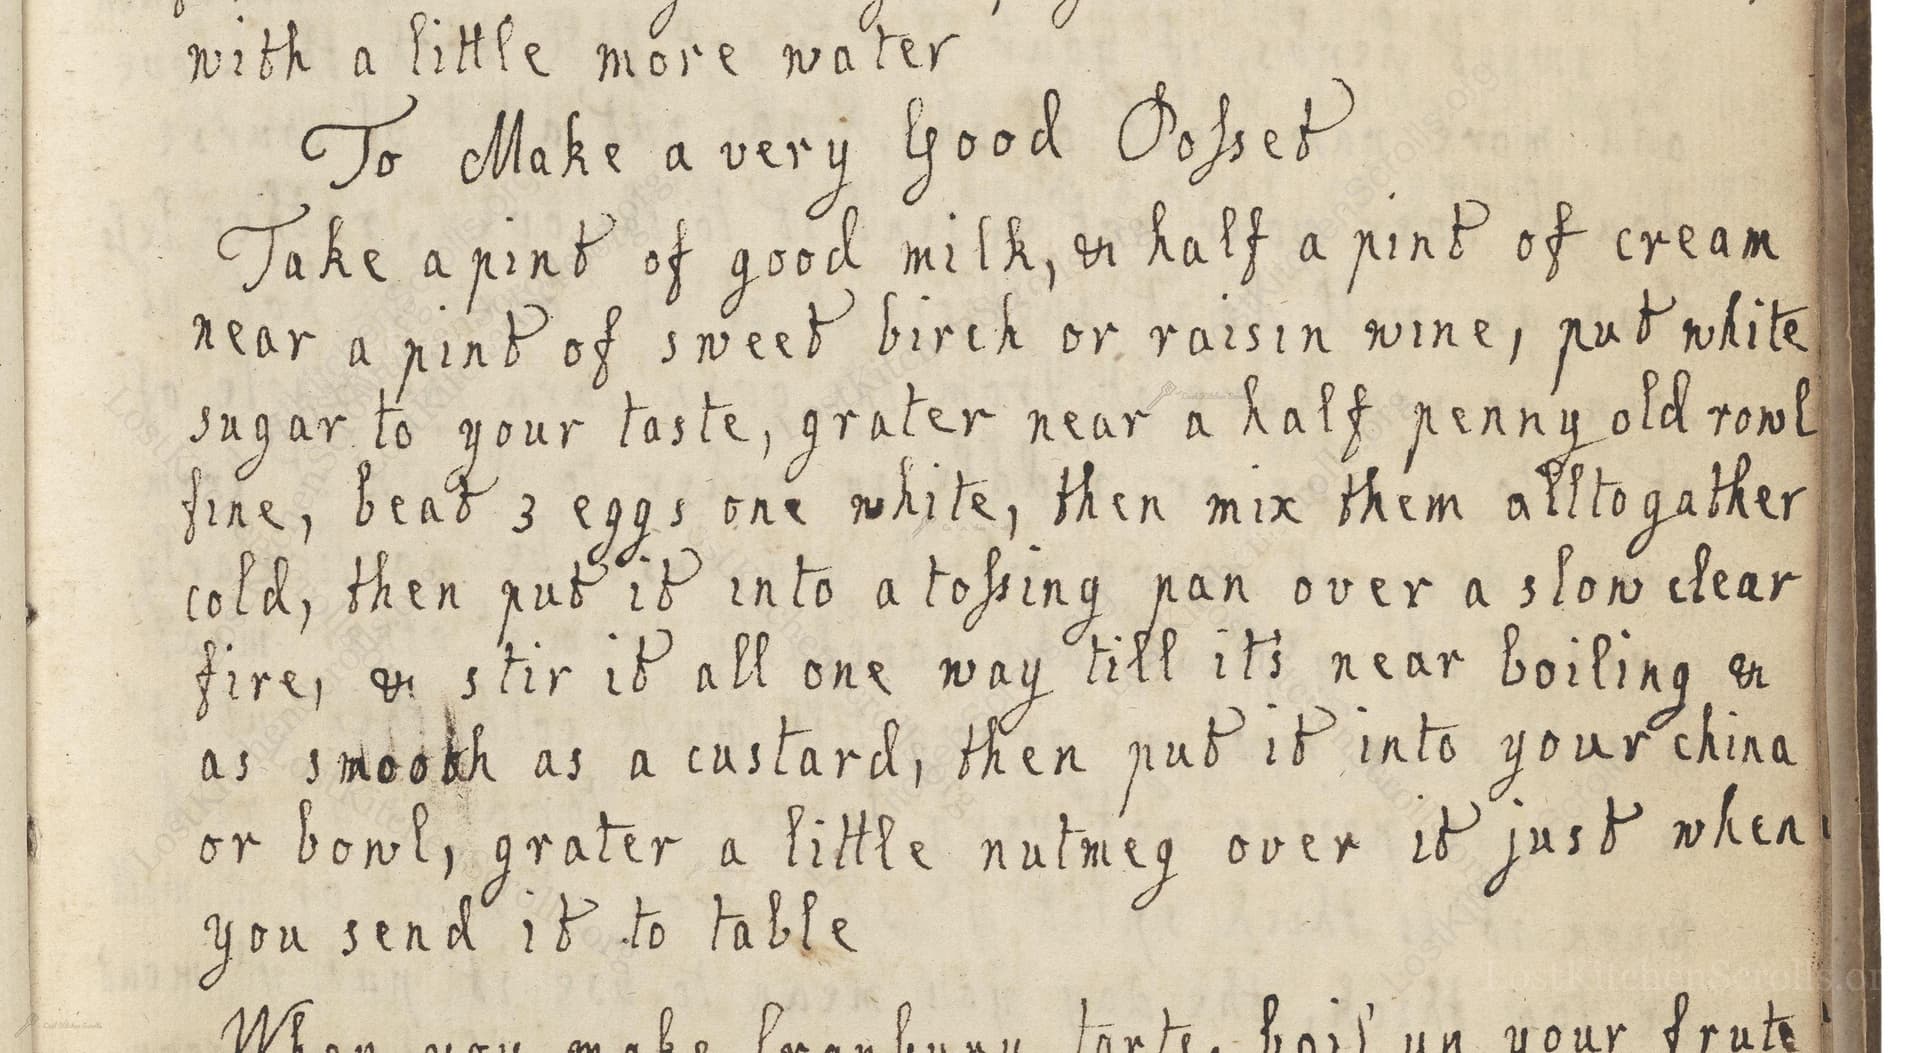 with a little more water
To Make a very Good Posset
Take a pint of good milk, & half a pint of cream
near a pint of sweet birch or raisin wine, put white
sugar to your taste, grater near a half penny old rowl
fine, beat 3 eggs one white, then mix them alltogather
cold, then put it into a tossing pan over a slow clear
fire, & stir it all one way till it's near boiling &
as smooth as a custard, then put it into your china
or bowl, grater a little nutmeg over it just when
you send it to table
LostKitchenScrolls.or
When you make Cranbury tarts, boil up your frute